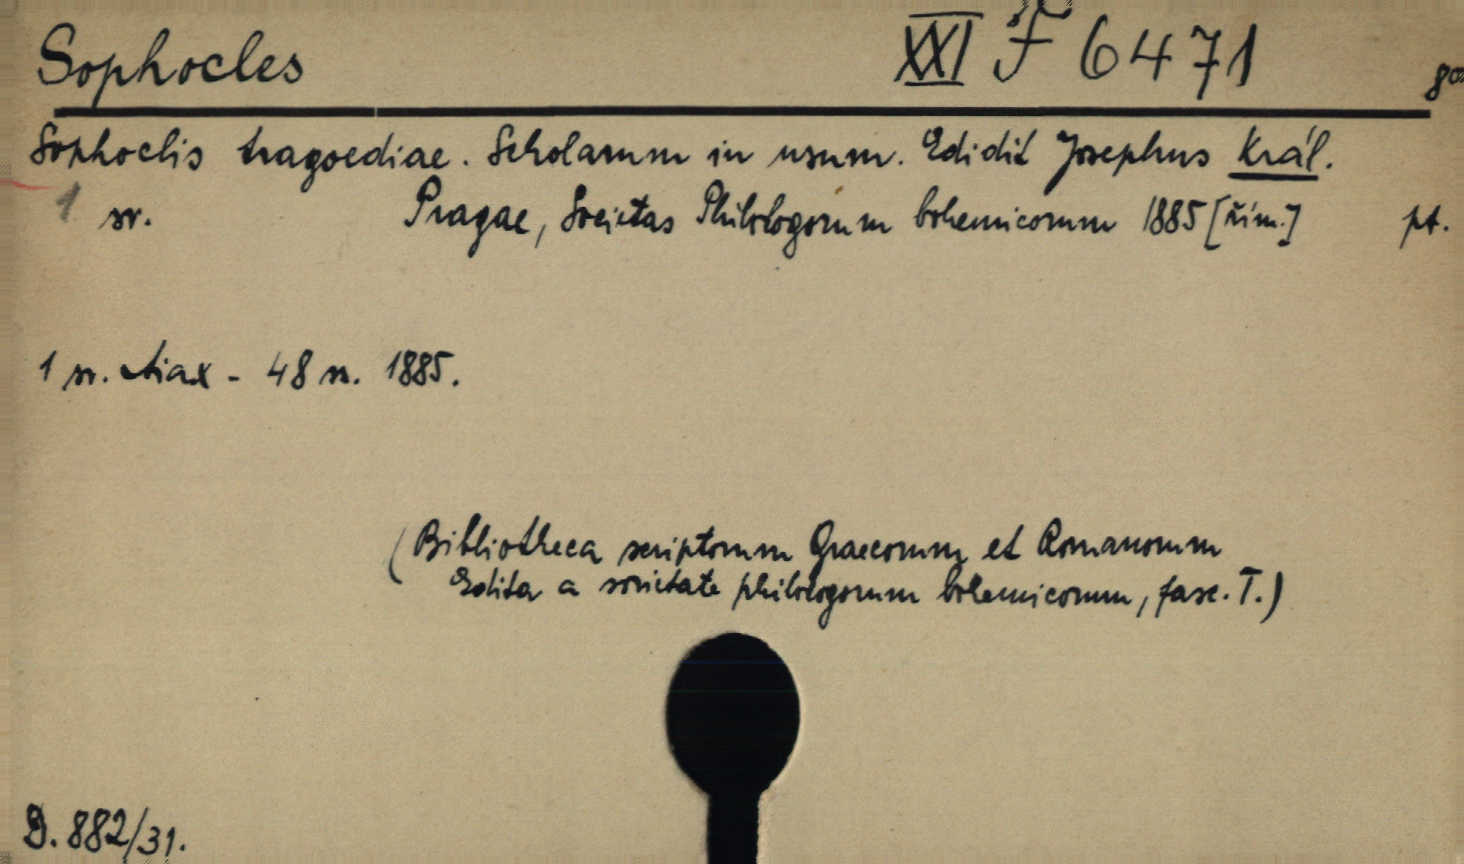 Sophocles XXI F 6471 8°
Sophoclis tragoediae. Scholarum in usum. Edidit Josephus Král.
1 sv. Pragae, Societas Philologorum bohemicorum 1885 [řím.] pt.
1 sv. Aiax - 48 s. 1885.
(Bibliotheca scriptorum Graecorum et Romanorum
Edita a societate philologorum bohemicorum, fasc. I.)
D. 882/31.